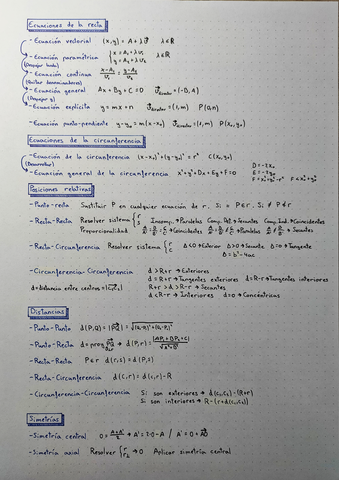 Ecuaciones de la recta
- Ecuación vectorial (x,y) = A + λv⃗ λ∈ℝ
- Ecuación paramétrica { x = A₁ + λv₁ λ∈ℝ
(Despejar lambda) y = A₂ + λv₂
- Ecuación continua
(Quitar denominadores)
- Ecuación general Ax + By + C = 0 v⃗ director = (-B, A)
(Despejar y)
- Ecuación explícita y = mx + n v⃗ director = (1, m) P(0, n)
- Ecuación punto-pendiente y - y₀ = m(x - x₀) v⃗ director = (1, m) P(x₀, y₀)
Ecuaciones de la circunferencia
- Ecuación de la circunferencia (x - x₀)² + (y - y₀)² = r² C(x₀, y₀)
(Desarrollar) D = -2x₀
- Ecuación general de la circunferencia x² + y² + Dx + Ey + F = 0 E = -2y₀
F = x₀² + y₀² - r²
Posiciones relativas
- Punto-recta Sustituir P en cualquier ecuación de r. Si = P∈r. Si ≠ P∉r
- Recta-Recta Resolver sistema { r s Incomp. → Paralelas Comp. Det. → Secantes Comp. Ind. → Coincidentes
Proporcionalidad → Coincidentes → Paralelas → Secantes
- Recta-Circunferencia Resolver sistema { r c Δ<0 → Exterior Δ>0 → Secante Δ=0 → Tangente
Δ = b² - 4ac
- Circunferencia-Circunferencia d > R+r → Exteriores
d = R+r → Tangentes exteriores d = R-r → Tangentes interiores
d → distancia entre centros R+r > d > R-r → Secantes
d < R-r → Interiores d = 0 → Concéntricas
Distancias
- Punto-Punto d(P,Q) = |PQ⃗| = √(Q₁-P₁)² + (Q₂-P₂)²
- Punto-Recta d(P,r) = |AP₁ + BP₂ + C| / √A² + B²
- Recta-Recta P∈r d(r,s) = d(P,s)
- Recta-Circunferencia d(C,r) = d(c,r) - R
- Circunferencia-Circunferencia Si son exteriores → d(c₁,c₂) - (R+r)
Si son interiores → R - (r + d(c₁,c₂))
Simetrías
- Simetría central O = (A + A') / 2 → A' = 2·O - A / A' = O + AO⃗
- Simetría axial Resolver { r r₂ → O Aplicar simetría central